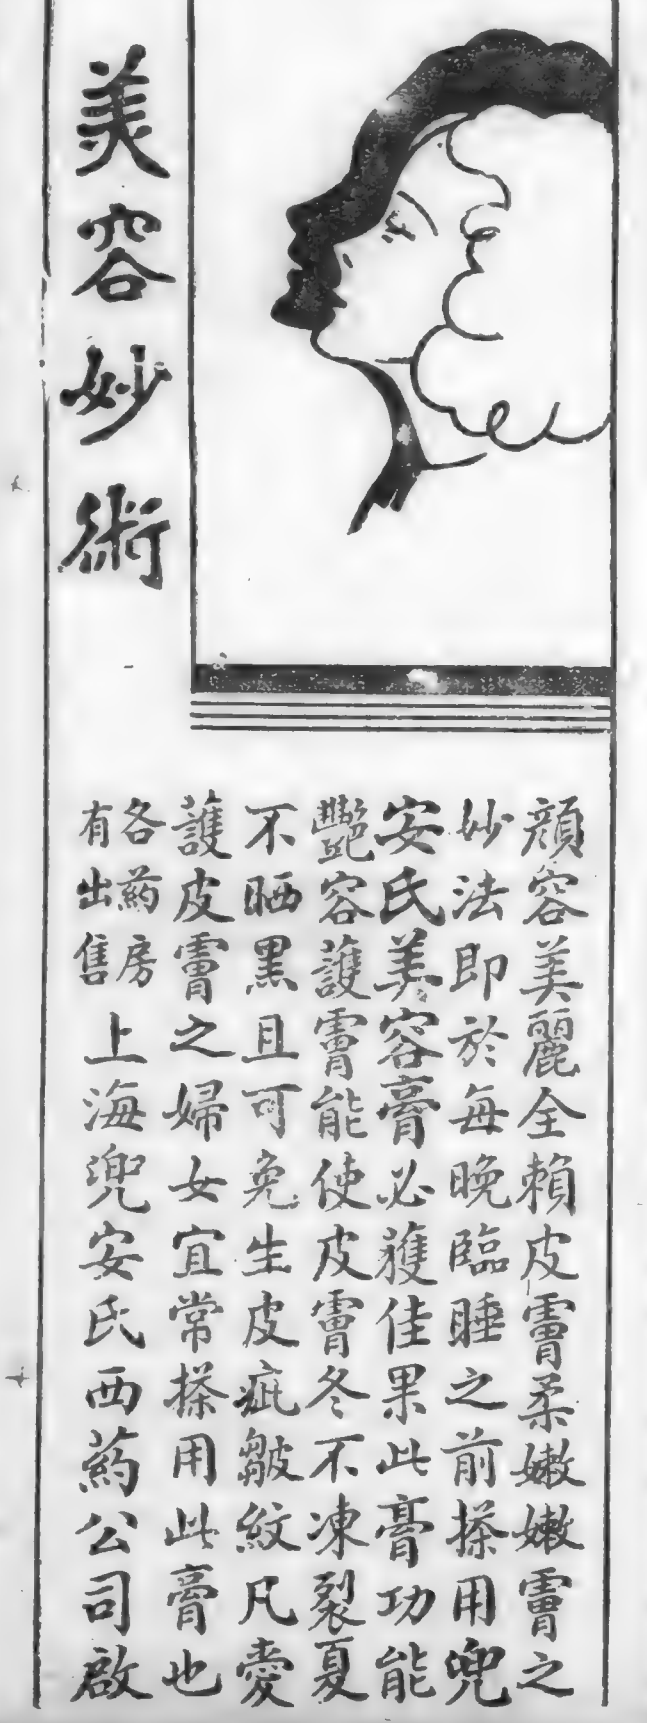 美容妙術
顔容美麗全賴皮膚柔嫩嫩膚之
妙法即於每晚臨睡之前搽用兜
安氏美容膏必獲佳果此膏功能
艷容護膚能使皮膚冬不凍裂夏
不晒黑且可免生皮疵皺紋凡愛
護皮膚之婦女宜常搽用此膏也
各葯房
有出售
上海兜安氏西葯公司啟